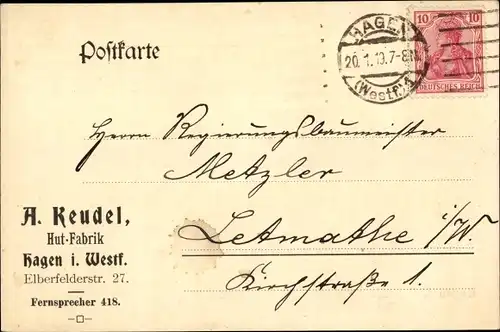 Postkarte
HAGEN
20.1.10.7-8N.
(Westf.)1
10 10
DEUTSCHES REICH
Herrn Regierungsbaumeister
Metzler
Letmathe i/W.
Kirchstraße 1.
A. Keudel,
Hut-Fabrik
Hagen i. Westf.
Elberfelderstr. 27.
Fernsprecher 418.